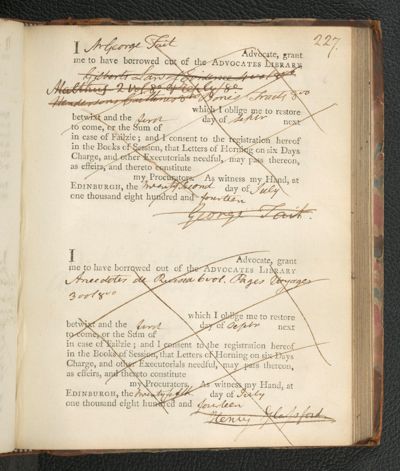 227.
I Mr George Tait Advocate, grant
me to have borrowed out of the ADVOCATES LIBRARY
Malthus 2 vol 8o
8o
which I oblige me to restore
betwixt and the first day of Septr next
to come, or the Sum of
in case of Failzie; and I consent to the registration hereof
in the Books of Session, that Letters of Horning on six Days
Charge, and other Executorials needful, may pass thereon,
as effeirs, and thereto constitute
my Procurators. As witness my Hand, at
EDINBURGH, the twenty second day of July
one thousand eight hundred and fourteen
George Tait.
I Advocate, grant
me to have borrowed out of the ADVOCATES LIBRARY
Anecdotes de 6 vol. Pages Voyages
3 vol 8vo
which I oblige me to restore
betwixt and the first day of Septr next
to come, or the Sum of
in case of Failzie; and I consent to the registration hereof
in the Books of Session, that Letters of Horning on six Days
Charge, and other Executorials needful, may pass thereon,
as effeirs, and thereto constitute
my Procurators. As witness my Hand, at
EDINBURGH, the twenty fifth day of July
one thousand eight hundred and fourteen
Henry Glassford.